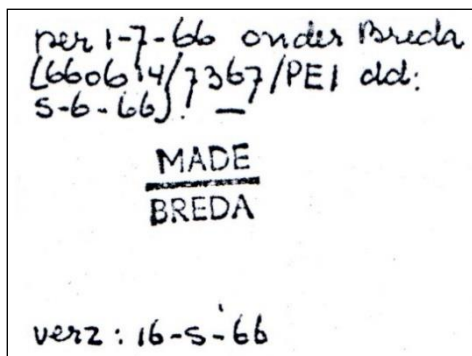 per 1-7-66 onder Breda
(660614/7367/PEI dd:
5-6-66). —
MADE
BREDA
verz: 16-5-'66